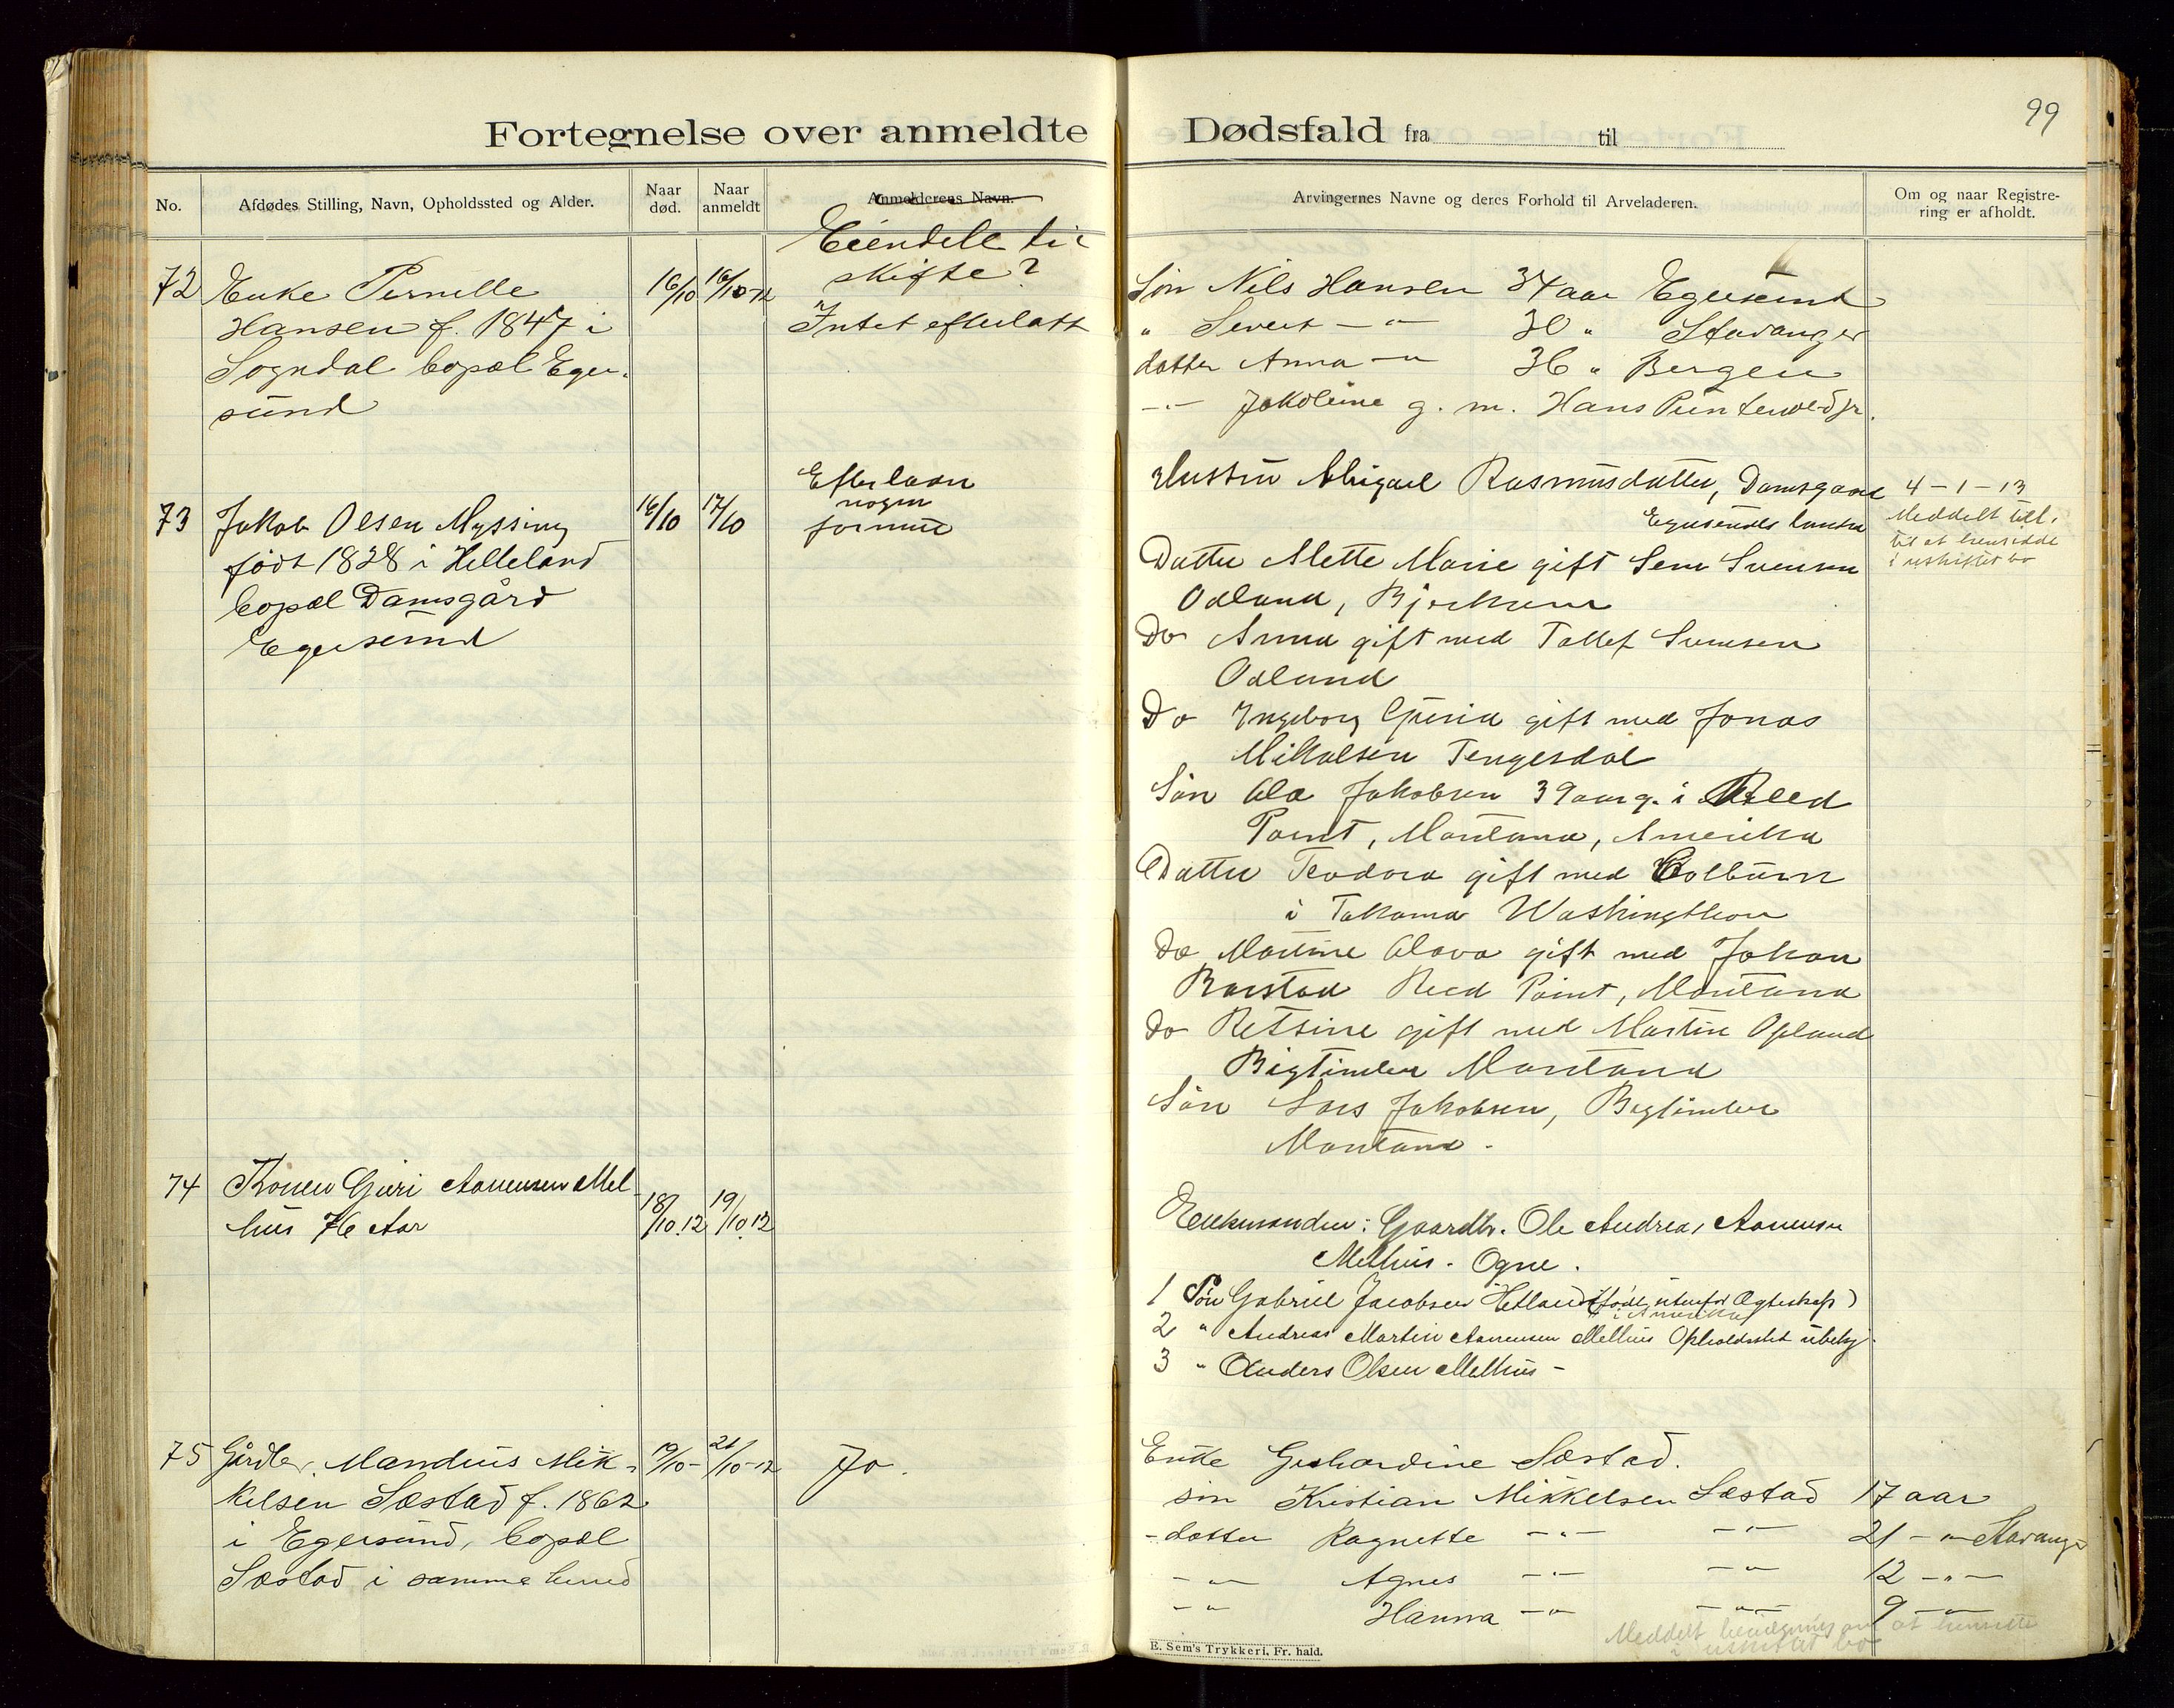 99
Fortegnelse over anmeldte Dødsfald fra til
No.
Afdødes Stilling, Navn, Opholdssted og Alder.
Naar død.
Naar anmeldt
Anmelderens Navn.
Arvingernes Navne og deres Forhold til Arveladeren.
Om og naar Registrering er afholdt.
Eiendele til
skifte?
72 Enke Pernille 16/10 16/10-12
Hansen f. 1847 i Intet efterlatt
Sogndal bopæl Eger-
sund
Søn Nils Hansen 34 aar Egersund
" Severt -"- 30 " Stavanger
datter Anna -"- 36 " Bergen
-"- Jakoline g. m. Hans Puntervold jr.
73 Jakob Olsen Myssing 16/10 17/10
født 1828 i Helleland
bopæl Damsgård
Egersund
Efterlader
nogen
formue
Hustru Abigael Rasmusdatter, Damsgaard
Egersunds landsn
Datter Mette Marie gift Sem Svensen
Odland, Bjerkreim
Do Anna gift med Tollef Svensen
Odland
Do Ingeborg Guria gift med Jonas
Mikalsen Tengesdal
Søn Ola Jakobsen 39 aar g. i Reed
Point, Montana, Amerika
Datter Teodora gift med Colburn
i Takoma Washingthon
Do Martine Olava gift med Johan
Barstad Reed Point, Montana
Do Retsine gift med Martin Opland
Bigtimber Montana
Søn Lars Jakobsen, Bigtimber
Montana.
4-1-13
Meddelt till.
til at hensidde
i uskiftet bo
74 Konen Guri Aanensen Mel- 18/10.12 19/10.12
hus 76 Aar
Enkemanden: Gaardbr. Ole Andreas Aanensen
Melhus. Ogne.
1 Søn Gabriel Jacobsen Hetland (født utenfor Ægteskap)
i Amerika
2 " Andreas Martin Aanensen Melhus Opholdsstet ubekj.
3 " Anders Olsen Melhus -
75 Gårdbr. Mandius Mik- 19/10- 21/10-12 Ja.
kelsen Sæstad f. 1862
i Egersund, bopæl
Sæstad i samme herred
Enke Gerhardine Sæstad.
søn Kristian Mikkelsen Sæstad 17 aar
-datter Ragnette -"- -"- 21 -"- Stavanger
-"- Agnes -"- -"- 12 -"-
-"- Hanna -"- -"- 9 -"-
Meddelt bevilgning om at hensitte
i uskiftet bo
E. Sem's Trykkeri, Fr. hald.